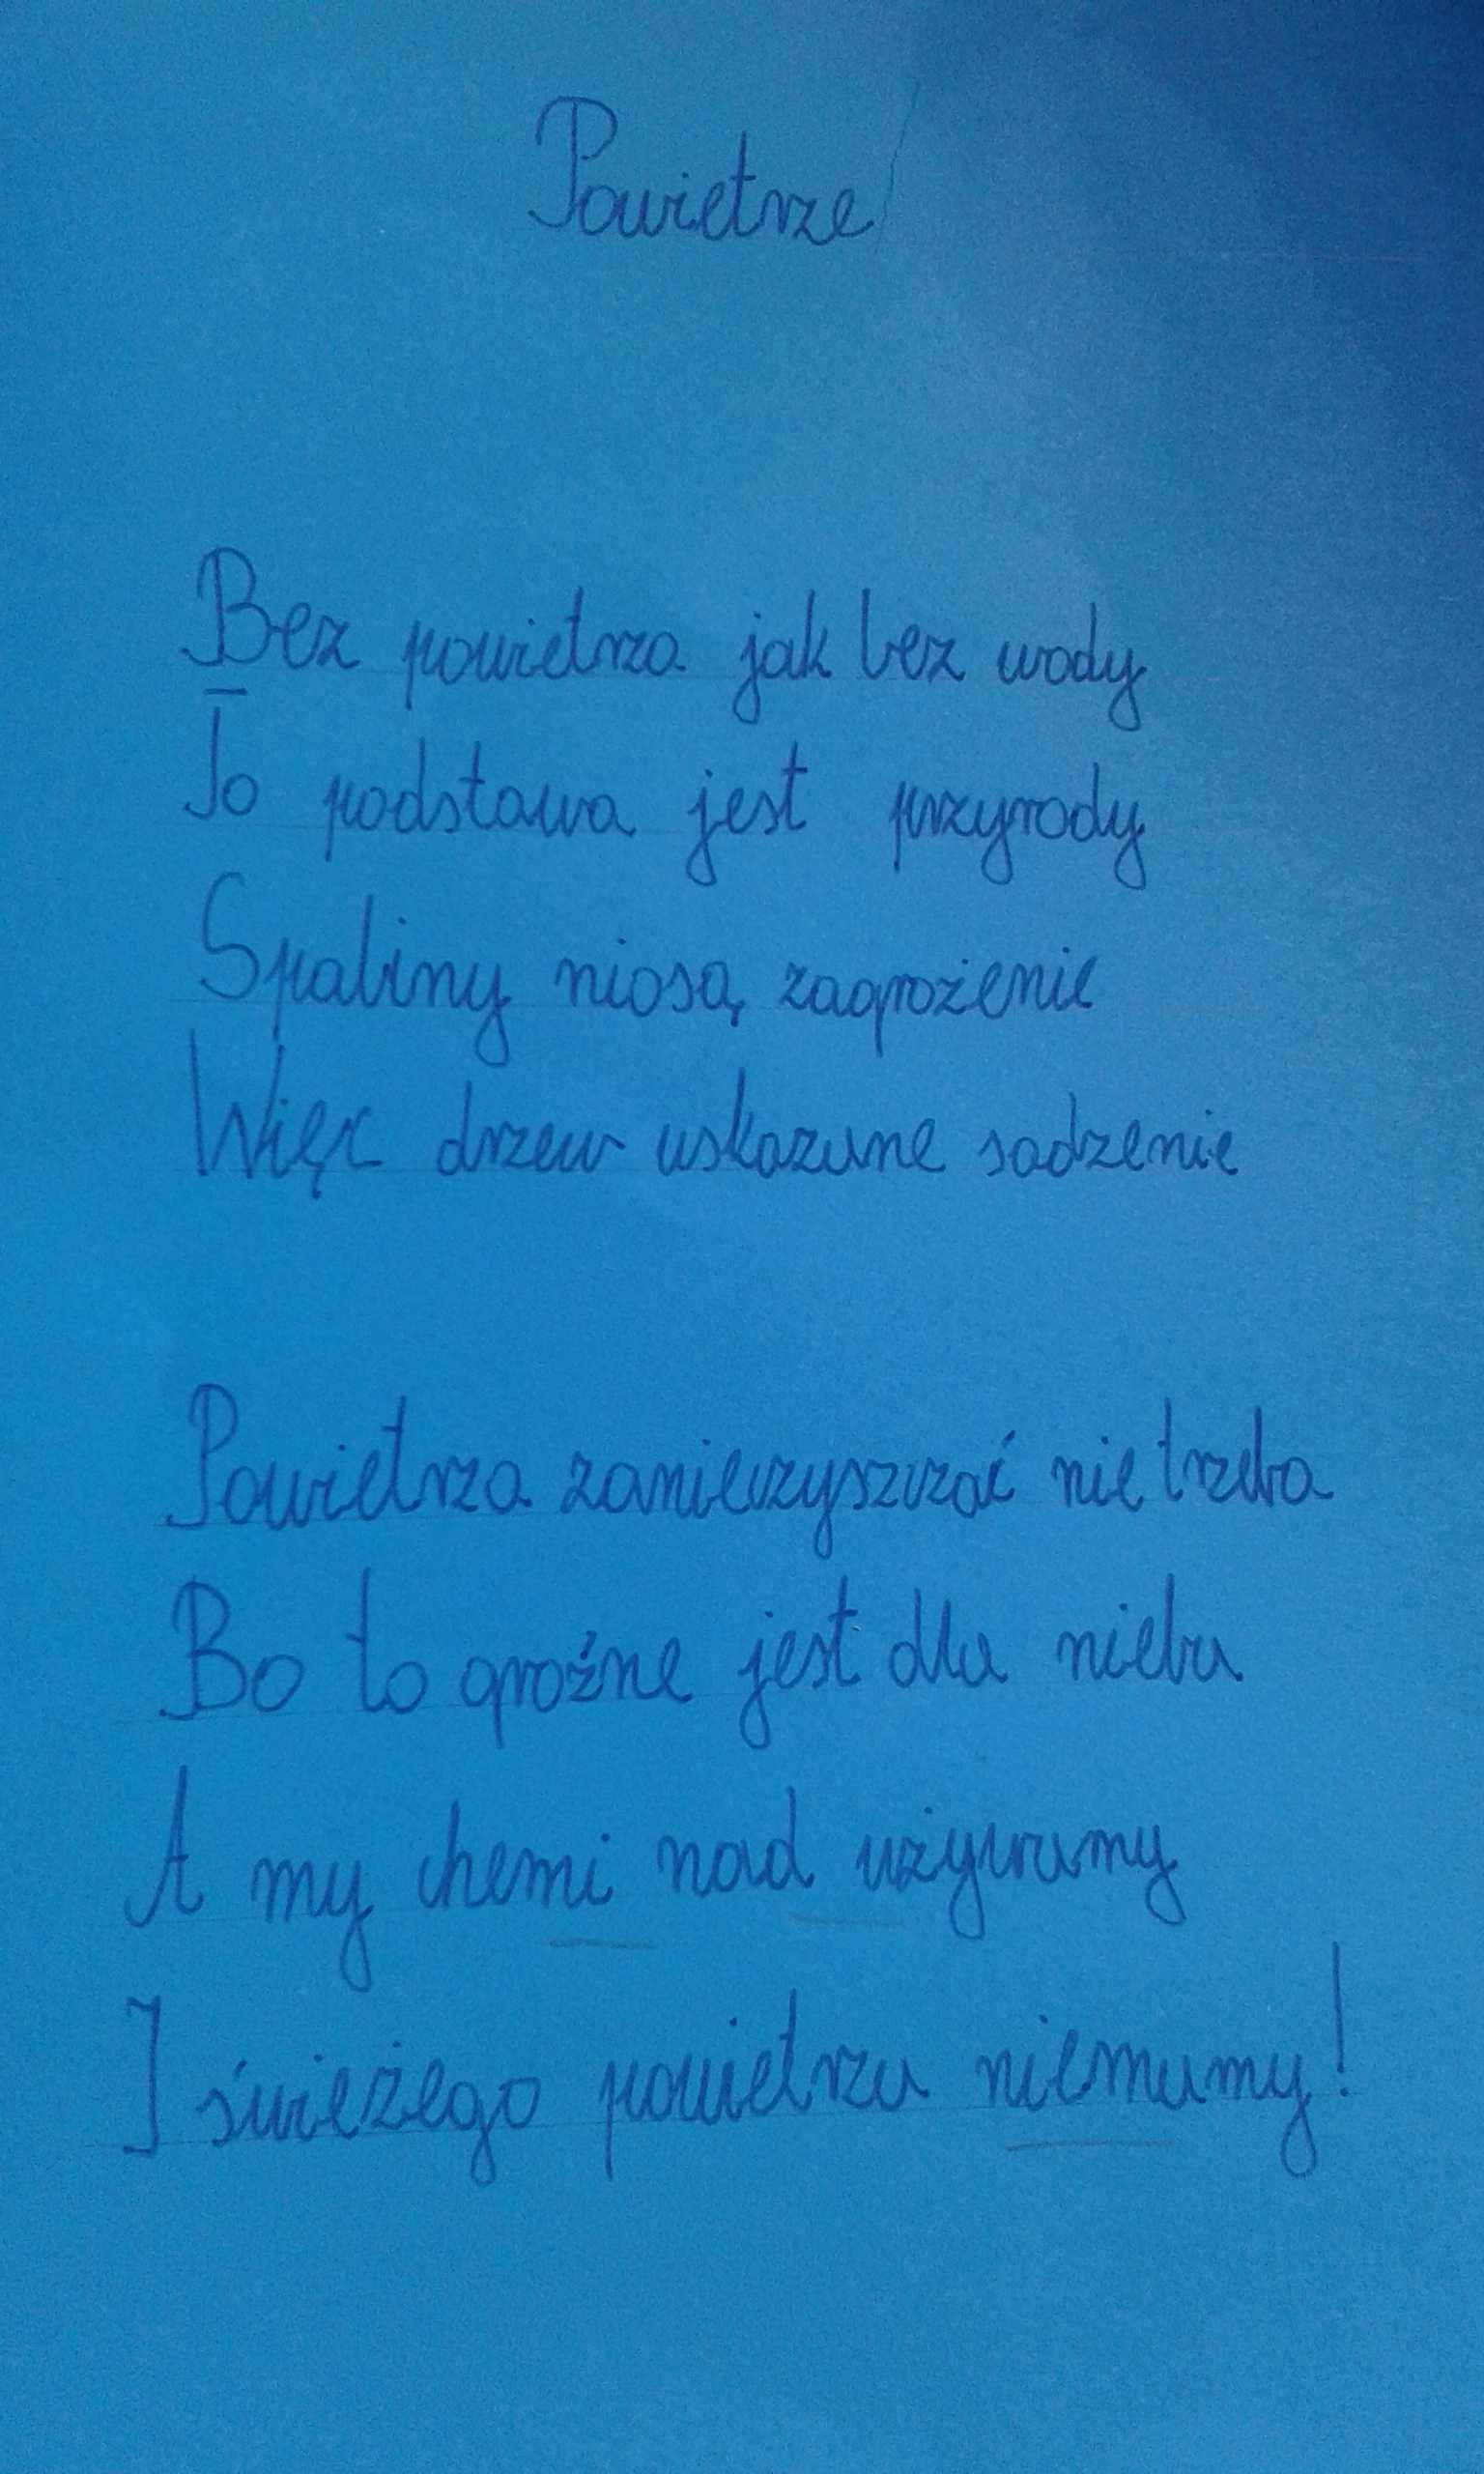 Powietrze
Bez powietrza jak bez wody
To podstawa jest przyrody
Spaliny niosą zagrożenie
Więc drzew wskazane sadzenie
Powietrza zanieczyszczać nie trzeba
Bo to groźne jest dla nieba
A my chemi nad używamy
I świeżego powietrza niemamy!